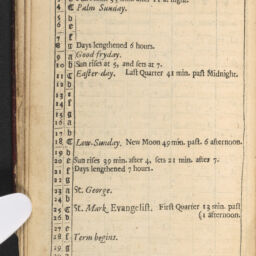 4 C Palm Sunday.
5 d
6 e
7 f
8 g Days lengthened 6 hours.
9 A Good fryday.
10 b Sun rises at 5, and sets at 7.
11 C Easter-day. Last Quarter 41 min. past Midnight.
12 d
13 e
14 f
15 g
16 A
17 b
18 C Low-Sunday. New Moon 49 min. past. 6 afternoon.
19 d
20 e Sun rises 39 min. after 4, sets 21 min. after 7.
21 f Days lengthened 7 hours.
22 g
23 A St. George.
24 b
25 C St. Mark Evangelist. First Quarter 13 min. past
26 d (1 afternoon.
27 e
28 f Term begins.
29 g